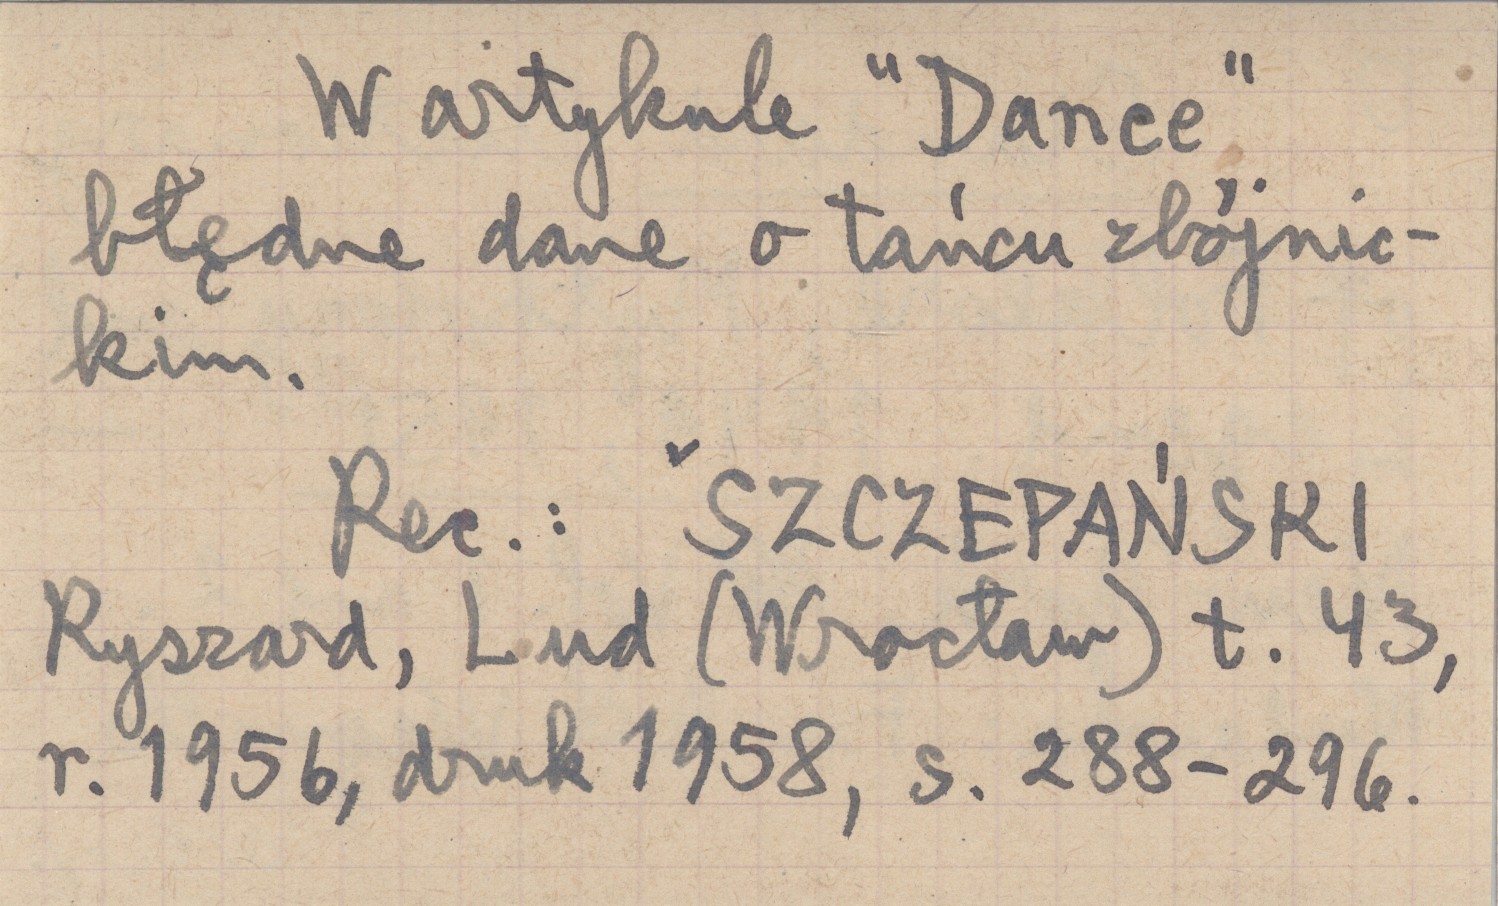 W artykule "Dance"
błędne dane o tańcu zbójnic-
kim.
Rec.: ˇSZCZEPAŃSKI
Ryszard, Lud (Wrocław) t. 43,
r. 1956, druk 1958, s. 288-296.